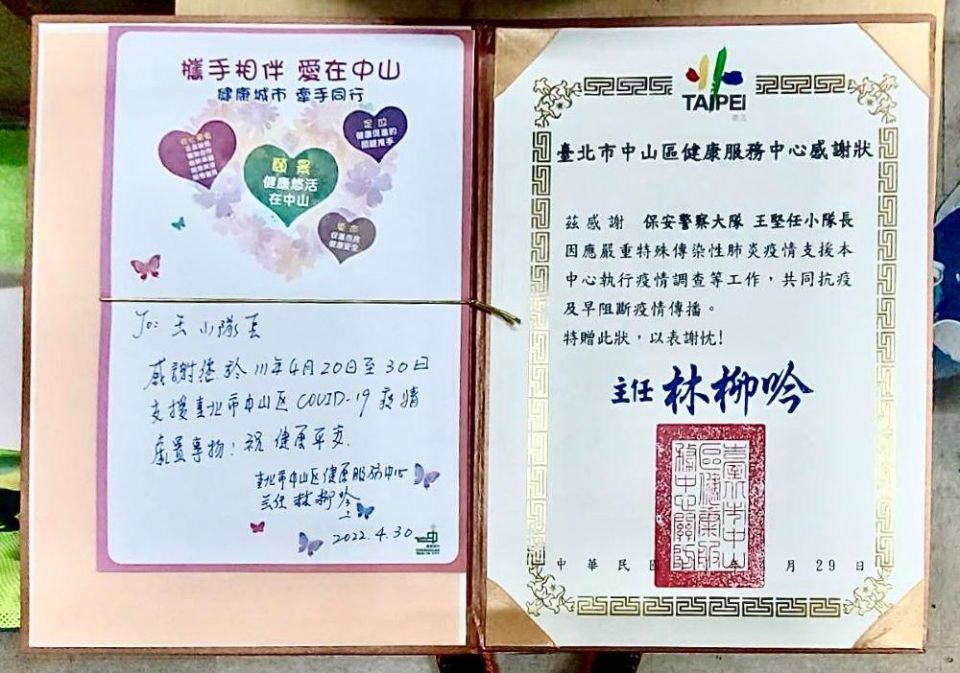 攜手相伴 愛在中山
健康城市 牽手同行
定位
健康促進的
關鍵推手
願景
健康悠活
在中山
使命
保護市民
健康安全
To: 王小隊長
感謝您於111年4月20日至30日
支援臺北市中山区COVID-19疫情
處置事物!祝健康平安.
臺北市中山区健康服務中心
主任 林柳吟
2022.4.30
TAIPEI
臺北
臺北市中山區健康服務中心感謝狀
茲感謝 保安警察大隊 王堅任小隊長
因應嚴重特殊傳染性肺炎疫情支援本
中心執行疫情調查等工作,共同抗疫
及早阻斷疫情傳播。
特贈此狀,以表謝忱!
主任 林柳吟
臺北市中山
區健康服
務中心關防
中華民國 年 月29日